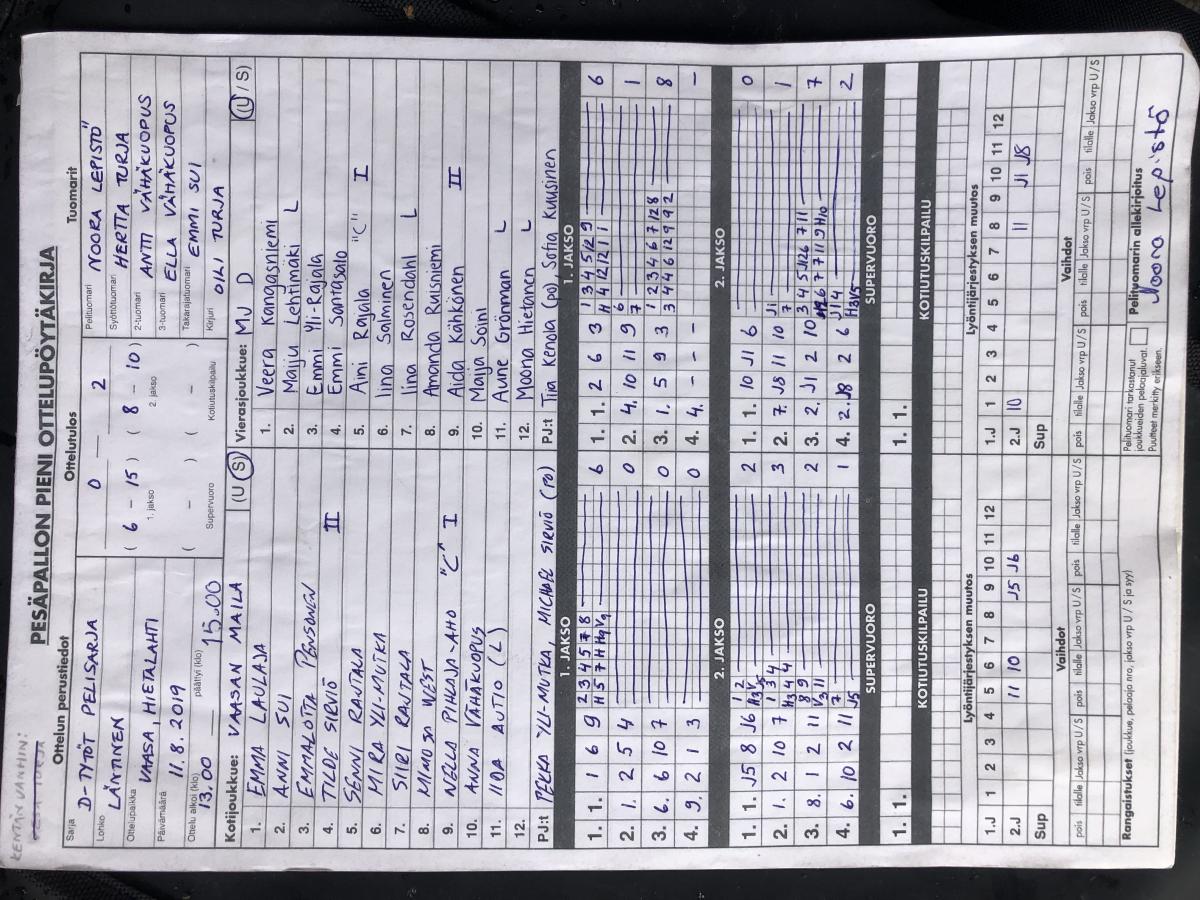 KENTÄN VANHIN:
PESÄPALLON PIENI OTTELUPÖYTÄKIRJA
Ottelun perustiedot
Ottelutulos
Tuomarit
Sarja
D-TYTÖT PELISARJA
Lohko
LÄNTINEN
Ottelupaikka
VAASA, HIETALAHTI
Päivämäärä
11.8.2019
Ottelu alkoi (klo)
13.00
päättyi (klo)
15.00
0 2
( 6 - 15 ) ( 8 - 10 )
1. jakso 2. jakso
( - ) ( - )
Supervuoro Kotiutuskilpailu
Pelituomari
NOORA LEPISTÖ
Syöttötuomari
HERTTA TURJA
2-tuomari
ANTTI VÄHÄKUOPUS
3-tuomari
ELLA VÄHÄKUOPUS
Takarajatuomari
EMMI SUI
Kirjuri
OILI TURJA
Kotijoukkue: VAASAN MAILA (U/S)
1. EMMA LAULAJA
2. ANNI SUI
3. EMMALOTTA PENSONEN
4. TILDE SIRVIÖ II
5. SENNI RAUTALA
6. MIRA YLI-MUTKA
7. SIIRI RAUTALA
8. MIMOSA WEST
9. NELLA PIHLAJA-AHO "C" I
10. ANNA VÄHÄKUOPUS
11. IIDA AUTIO (L)
12.
PJ:t PEKKA YLI-MUTKA, MICHAEL SIRVIÖ (PO)
Vierasjoukkue: MJ D (U/S)
1. Veera Kangasniemi
2. Maiju Lehtimäki L
3. Emmi Yli-Rajala
4. Emmi Santasalo
5. Ami Rajala "C" I
6. Iina Salminen
7. Iina Rosendahl L
8. Amanda Ruisniemi
9. Aida Kähkönen II
10. Maija Soini
11. Aune Grönman L
12. Moona Hietanen L
PJ:t Tiia Kenola (po) Sofia Kuusinen
1. JAKSO
1. 1. 1 6 9 2 3 4 5 7 8 6
2. 1. 2 5 4 0
3. 6. 6 10 7 0
4. 9. 2 1 3 0
1. JAKSO
1. 1. 2 6 3 1 3 4 5 12 9 H 4 12 12 1 1 6
2. 4. 10 11 9 6 7 1
3. 1. 5 9 3 1 2 3 4 6 7 12 8 3 4 4 6 12 9 9 2 8
4. 4. - - - -
2. JAKSO
1. 1. J5 8 J6 1 2 2
2. 1. 2 10 7 1 3 4 3
3. 8. 1 2 11 8 9 2
4. 6. 10 2 11 7 J5 1
2. JAKSO
1. 1. 10 J1 6 0
2. 7. J8 11 10 J1 7 1
3. 2. J1 2 10 3 4 5 12 6 7 11 7
4. 2. J8 2 6 J1 4 2
SUPERVUORO
1. 1.
SUPERVUORO
1. 1.
KOTIUTUSKILPAILU
KOTIUTUSKILPAILU
Lyöntijärjestyksen muutos
1.J 1 2 3 4 5 6 7 8 9 10 11 12
2.J 11 10 J5 J6
Sup
Lyöntijärjestyksen muutos
1.J 1 2 3 4 5 6 7 8 9 10 11 12
2.J 10 11 J1 J8
Sup
Vaihdot
pois tilalle Jakso vrp U/S pois tilalle Jakso vrp U/S pois tilalle Jakso vrp U/S
Vaihdot
pois tilalle Jakso vrp U/S pois tilalle Jakso vrp U/S pois tilalle Jakso vrp U/S
Rangaistukset (joukkue, pelaaja nro, jakso vrp U / S ja syy)
Pelituomari tarkastanut
joukkueiden pelaajaluvat.
Puutteet merkitty erikseen.
Pelituomarin allekirjoitus
Noora Lepistö